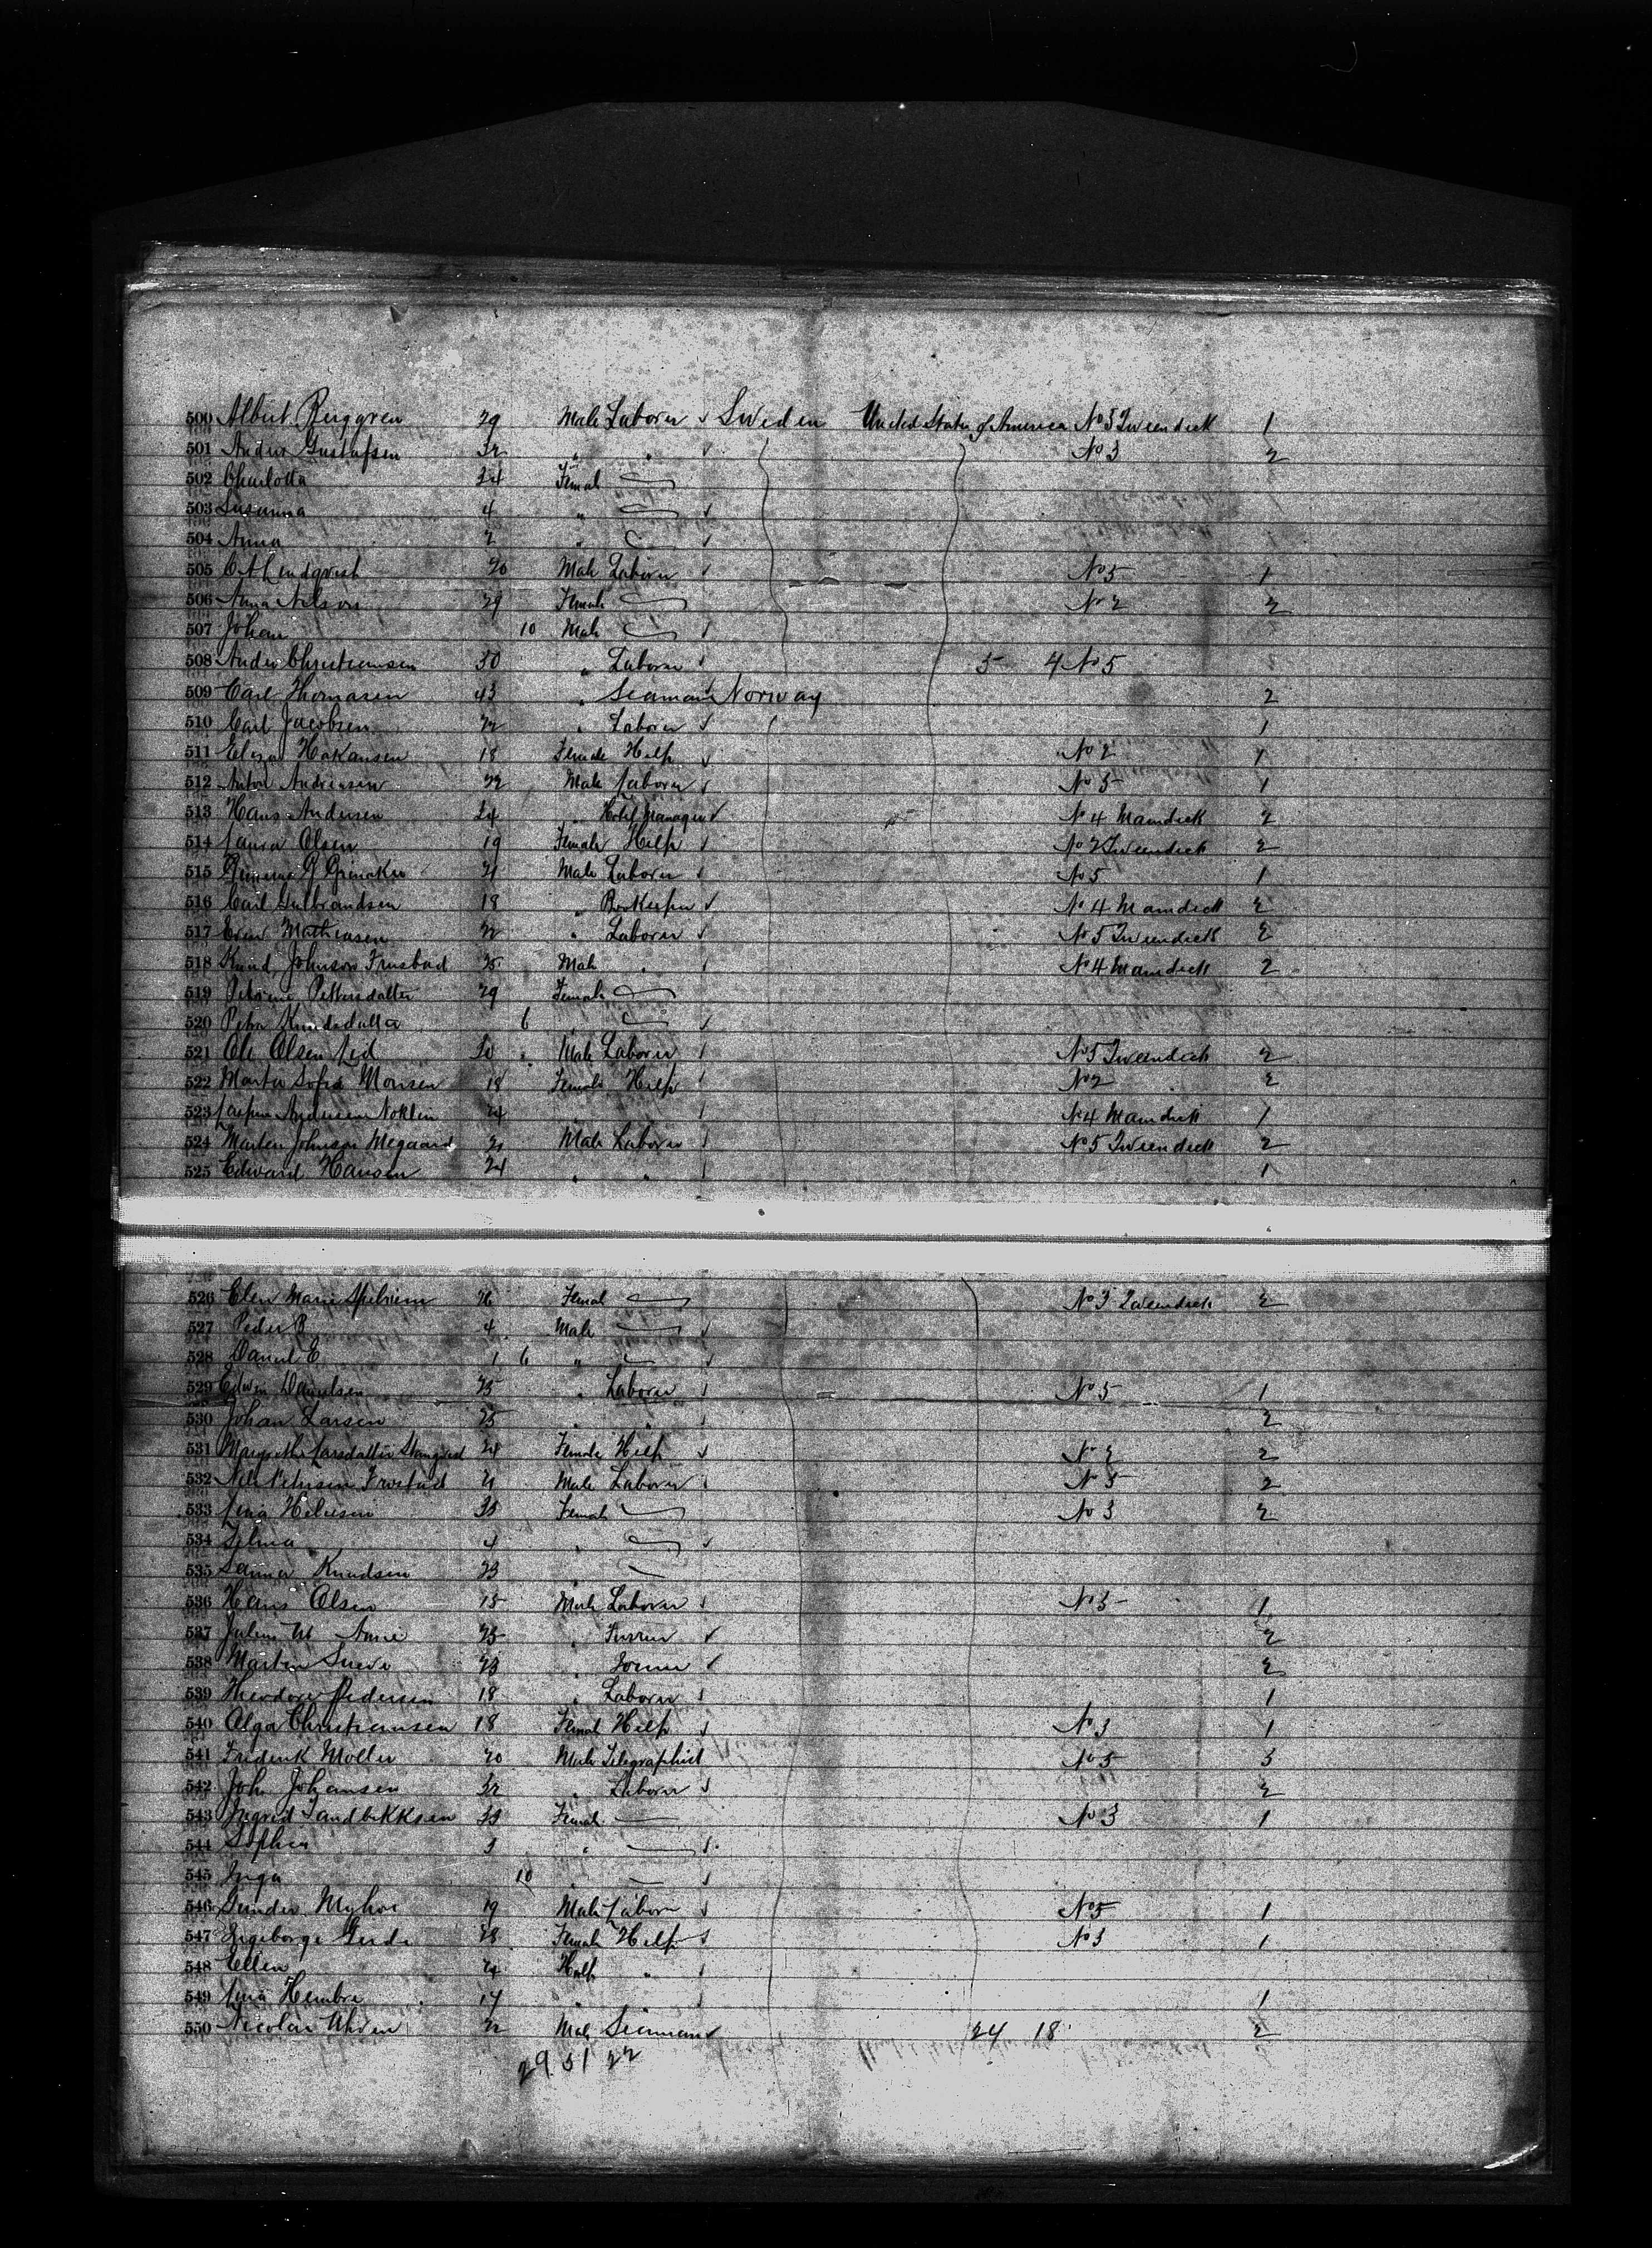 500 Albert Berggren 29 Male Laborer Sweden United States of America No 5 Tweendeck 1
501 Anders Gustafsen 32 " " No 3 2
502 Charlotta 24 Female
503 Susanna 4 "
504 Anna 2 "
505 C A Lindqvist 20 Male Laborer No 5 1
506 Anna Nilson 29 Female No 2 2
507 Johan 10 Male
508 Anders Christiansen 30 " Laborer 5 4 No 5
509 Carl Thomasen 43 " Seaman Norway 2
510 Carl Jacobsen 22 " Laborer 1
511 Eliza Hakansen 18 Female Help No 2 1
512 Anton Andreasen 22 Male Laborer No 5 1
513 Hans Andersen 24 " Hotel Manager No 4 Maindeck 2
514 Laura Olsen 19 Female Help No 2 Tweendeck 2
515 21 Male Laborer No 5 1
516 Carl Gulbrandsen 18 " Bookeeper No 4 Maindeck 2
517 Mathiasen 22 " Laborer No 5 Tweendeck 2
518 Knud Johnson 25 Male " No 4 Maindeck 2
519 Pettersdatter 29 Female
520 Petra Knudsdatter 6 "
521 Ole Olsen 30 Male Laborer No 5 Tweendeck 2
522 Marta Sofie Monsen 18 Female Help No 2 2
523 Andersen 24 " " No 4 Maindeck 1
524 Marten Johnson Megaard 21 Male Laborer No 5 Tweendeck 2
525 Edward Hansen 24 " " 1
526 Elen Marie 26 Female No 3 Tweendeck 2
527 Peder B 4 Male
528 Daniel E 1 6 "
529 Edwin Danielsen 25 " Laborer No 5 1
530 Johan Larsen 25 " " 2
531 Margrethe Larsdatter 24 Female Help No 2 2
532 Nels Petersen Frostad 21 Male Laborer No 5 2
533 Lina 35 Female No 3 2
534 Selma 4 "
535 Knudsen 23 "
536 Hans Olsen 15 Male Laborer No 5 1
537 25 " 2
538 Martin 23 " 2
539 Theodore Pedersen 18 " Laborer 1
540 Olga Christiansen 18 Female Help No 3 1
541 Frederik Moller 20 Male Telegraphist No 5 3
542 John Johansen 32 " Laborer 2
543 Ingrid 33 Female No 3 1
544 Sophia 3 "
545 Inga 10 "
546 Gunder Myhre 19 Male Laborer No 5 1
547 Ingeborge 28 Female Help No 3 1
548 Ellen 24 Help "
549 Lina Hembre 17 " 1
550 Nicolai 22 Male Seaman 24 18 2
29 51 22